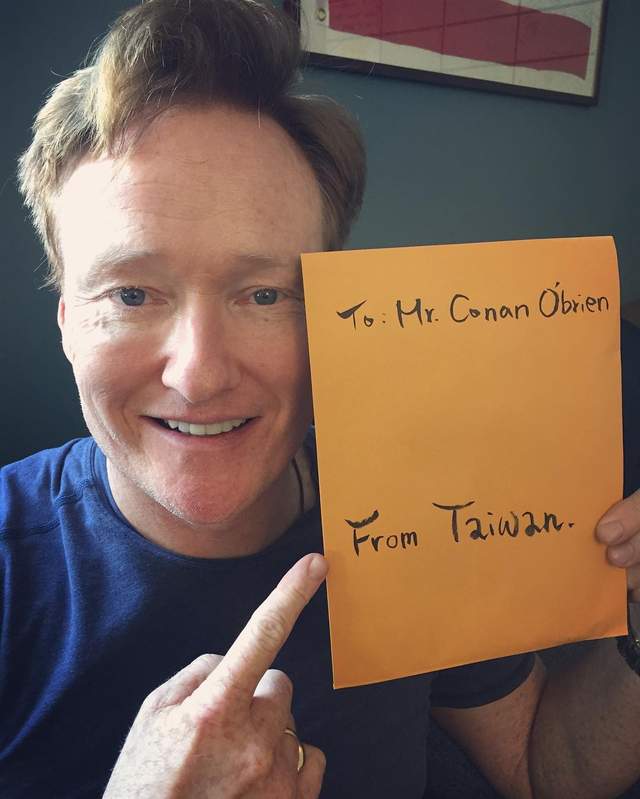 To: Mr. Conan O'brien
From Taiwan.